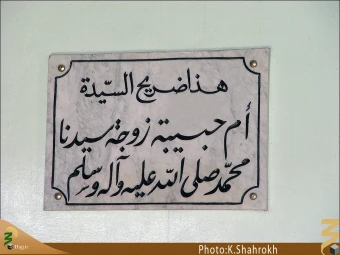 هذا ضريح السيّدة
أم حبيبة زوجة سيدنا
محمّد صلى الله عليه وآله وسلم
Photo:K.Shahrokh